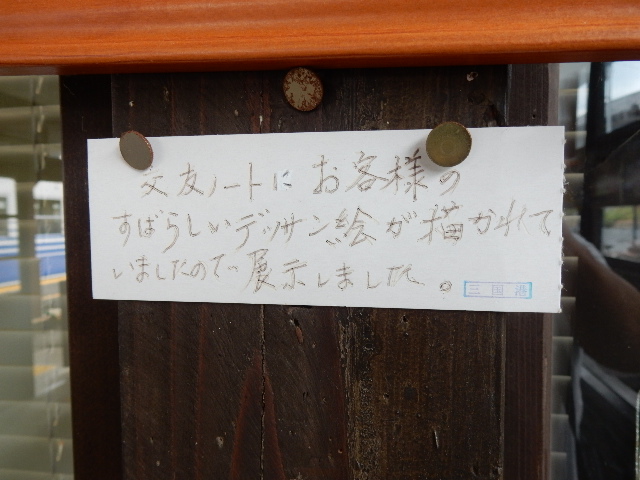 交友ノートにお客様の
すばらしいデッサン絵が描かれて
いましたので展示しました。
三国港